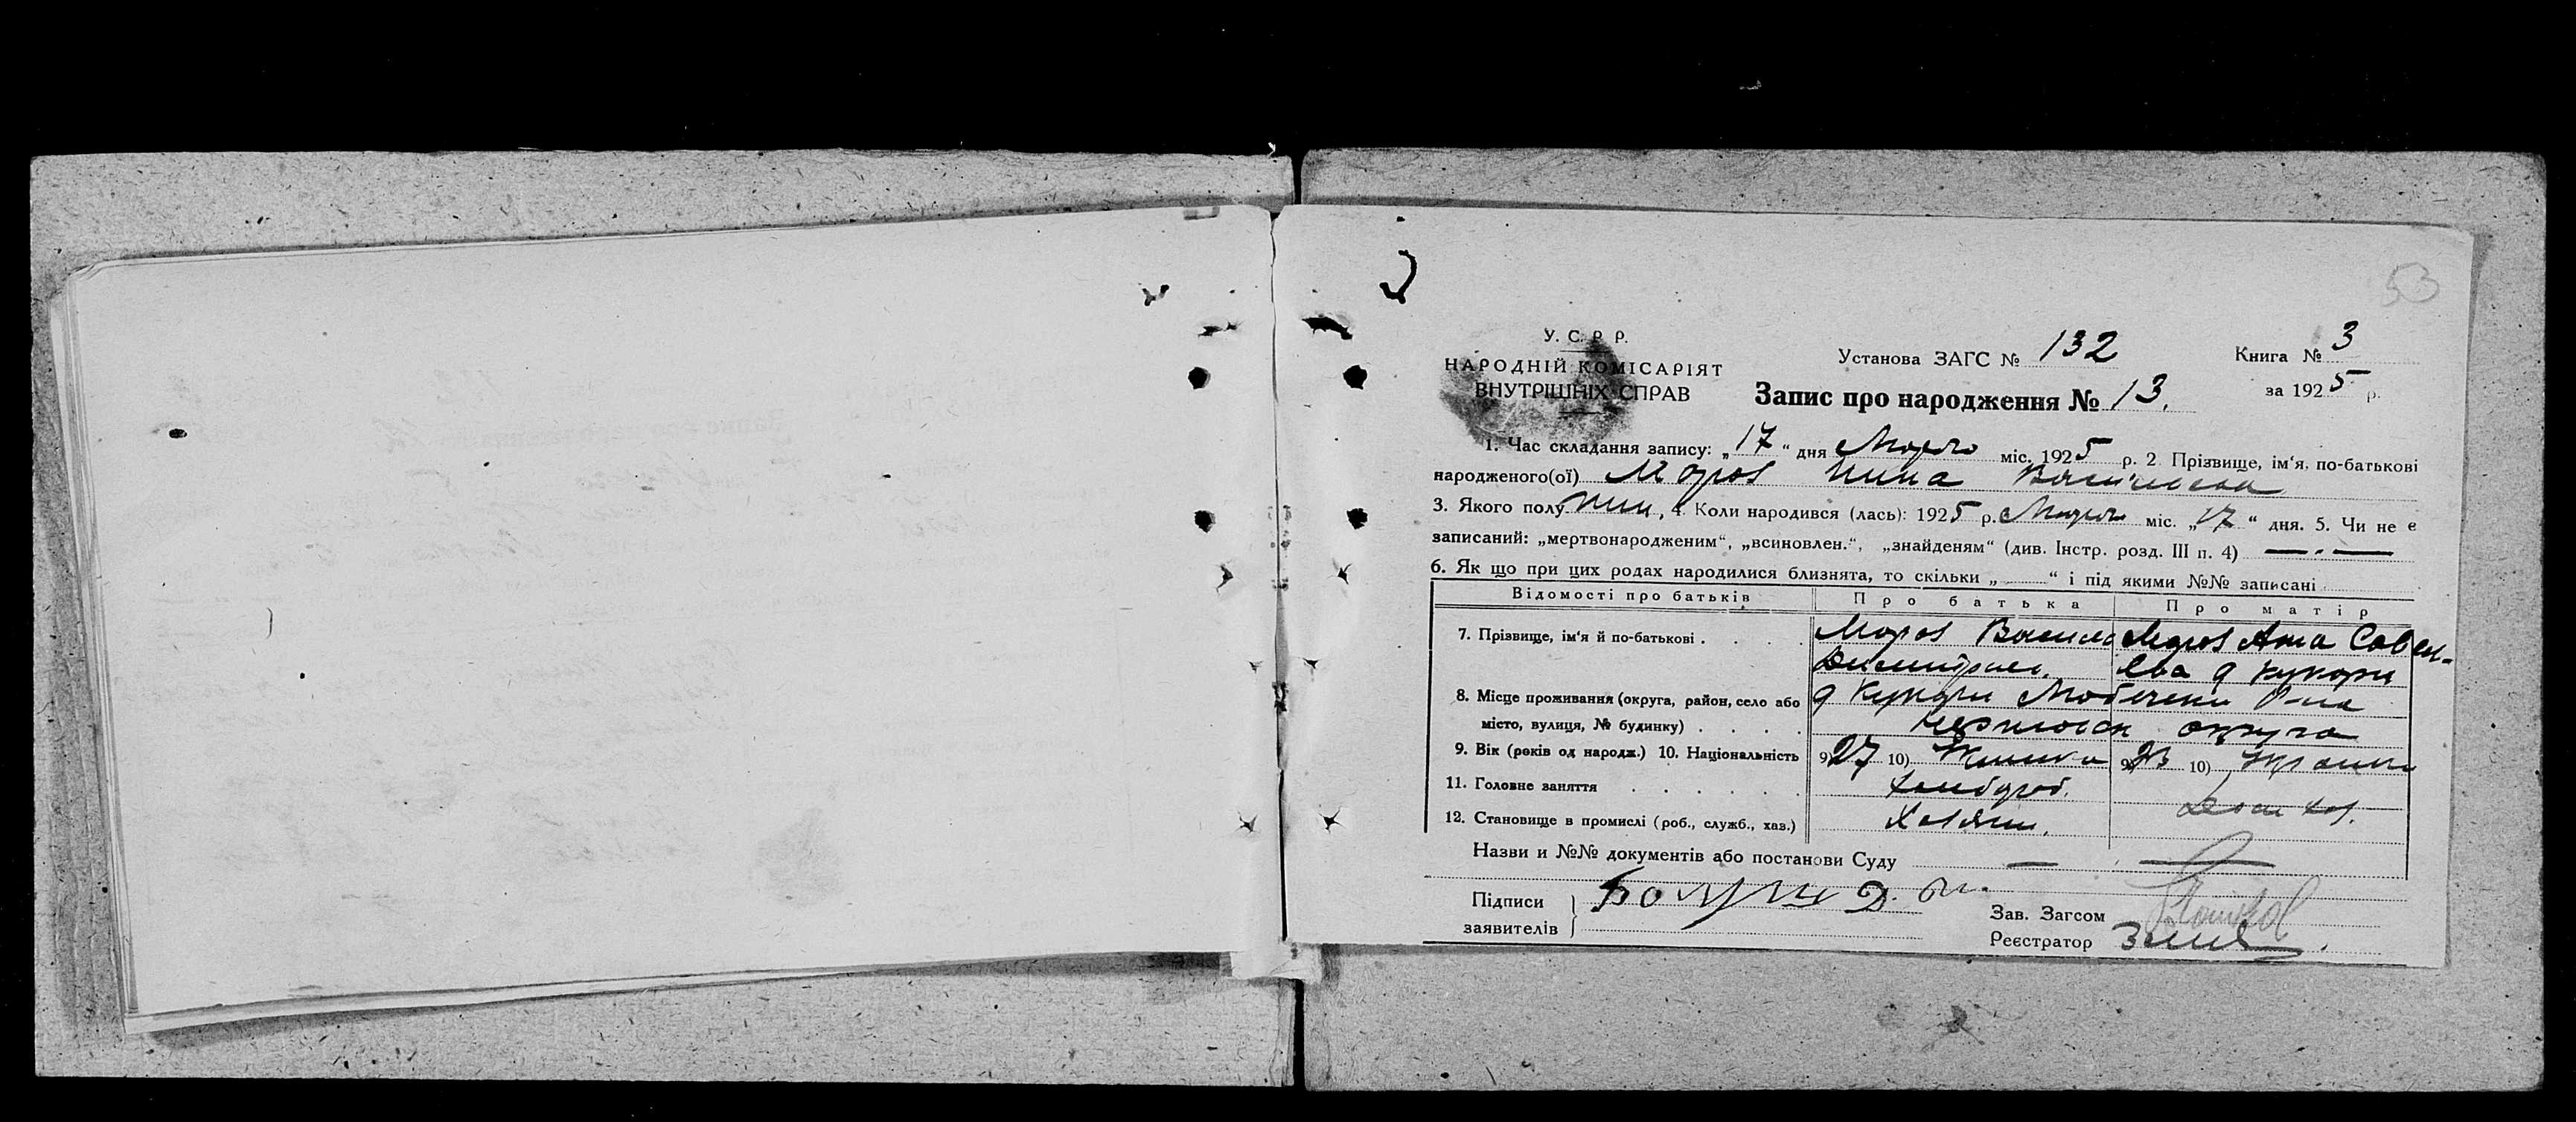 53
У. С. Р. Р.
НАРОДНІЙ КОМІСАРІЯТ
ВНУТРІШНІХ СПРАВ
Установа ЗАГС № 132
Книга № 3
Запис про народження № 13.
за 1925 р.
1. Час складання запису: „17“ дня міс. 1925 р. 2 Прізвище, ім‘я, по-батькові
народженого(ої) Мороз Нина
3. Якого полу жін, 4. Коли народився (лась): 1925 р. міс. „17“ дня. 5. Чи не є
записаний: „мертвонародженим“, „всиновлен.“, „знайденям“ (див. Інстр. розд. III п. 4) — „ —
6. Як що при цих родах народилися близнята, то скільки „ “ і під якими №№ записані
Відомості про батьків Про батька Про матір
7. Прізвище, ім‘я й по-батькові . . . . Мороз Василь Мороз Ана Савел-
ева
8. Місце проживання (округа, район, село або
місто, вулиця, № будинку) . . . . округа
9. Вік (років од народж.) 10. Національність 9) 27 10) 9) 23 10)
11. Головне заняття . . . . . . Хлібороб.
12. Становище в промислі (роб., служб., хаз.) Хазяин.
Назви и №№ документів або постанови Суду — —
Підписи
заявителів
Зав. Загсом
Реєстратор